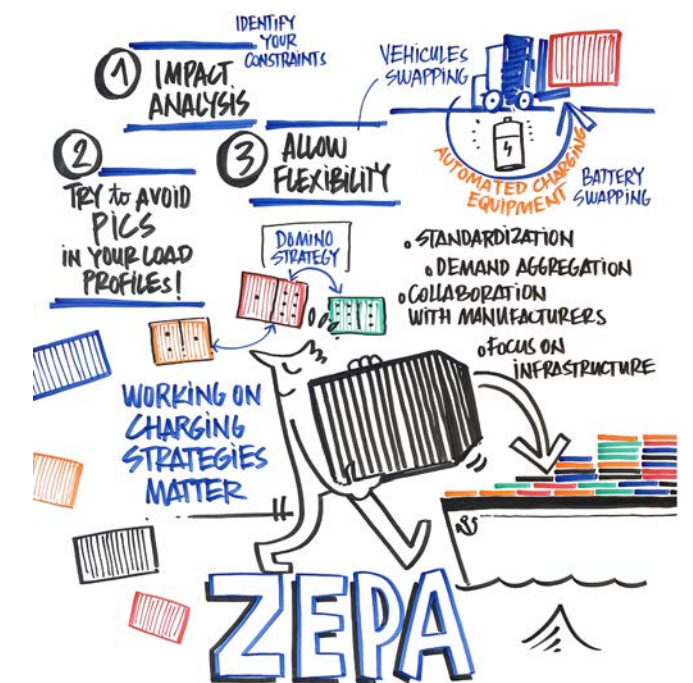 IDENTIFY
YOUR
CONSTRAINTS
1 IMPACT
ANALYSIS
2
TRY to AVOID
PICS
IN YOUR LOAD
PROFILES!
3 ALLOW
FLEXIBILITY
VEHICULES
SWAPPING
AUTOMATED CHARGING
EQUIPMENT
BATTERY
SWAPPING
DOMINO
STRATEGY
• STANDARDIZATION
• DEMAND AGGREGATION
• COLLABORATION
WITH MANUFACTURERS
• FOCUS ON
INFRASTRUCTURE
WORKING ON
CHARGING
STRATEGIES
MATTER
ZEPA